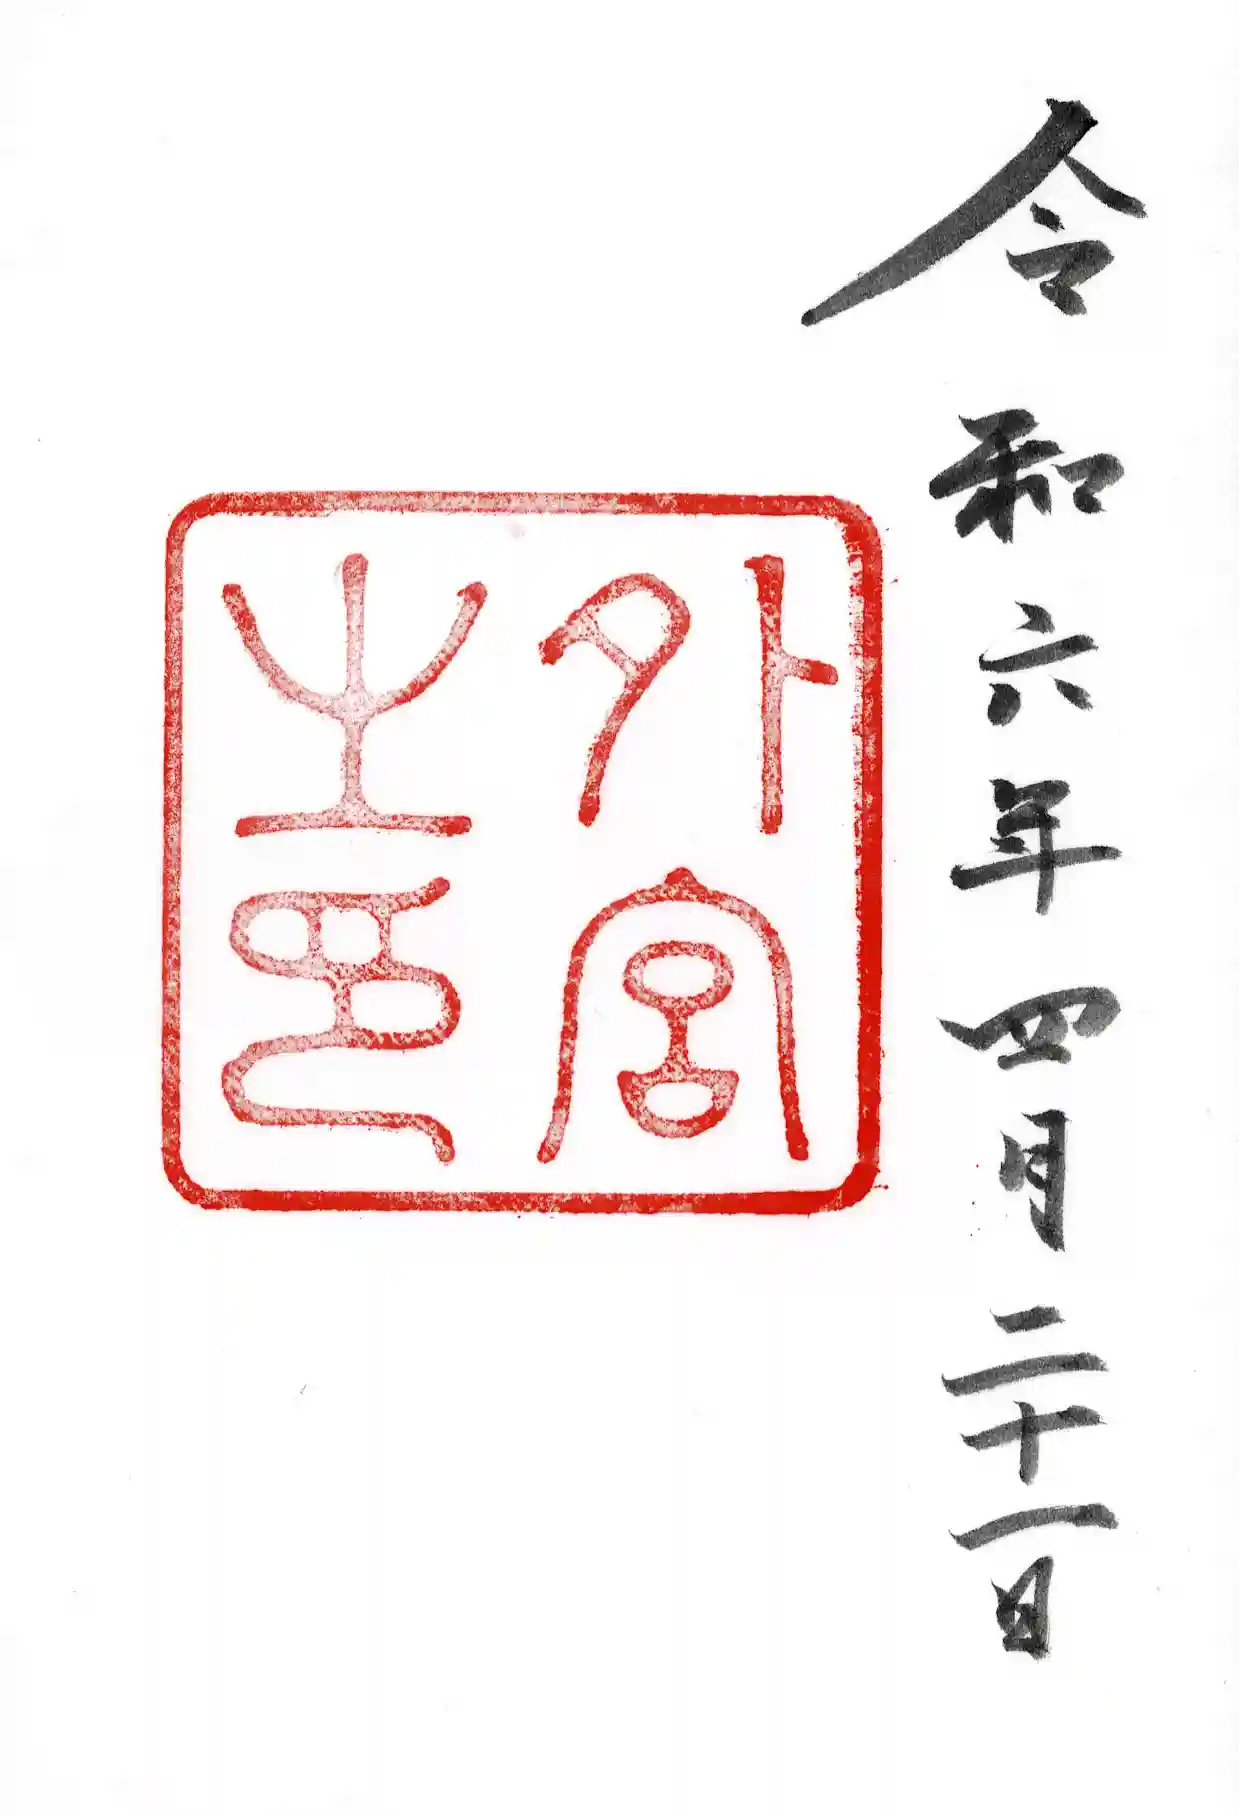 令和六年四月二十一日
外宮
之印